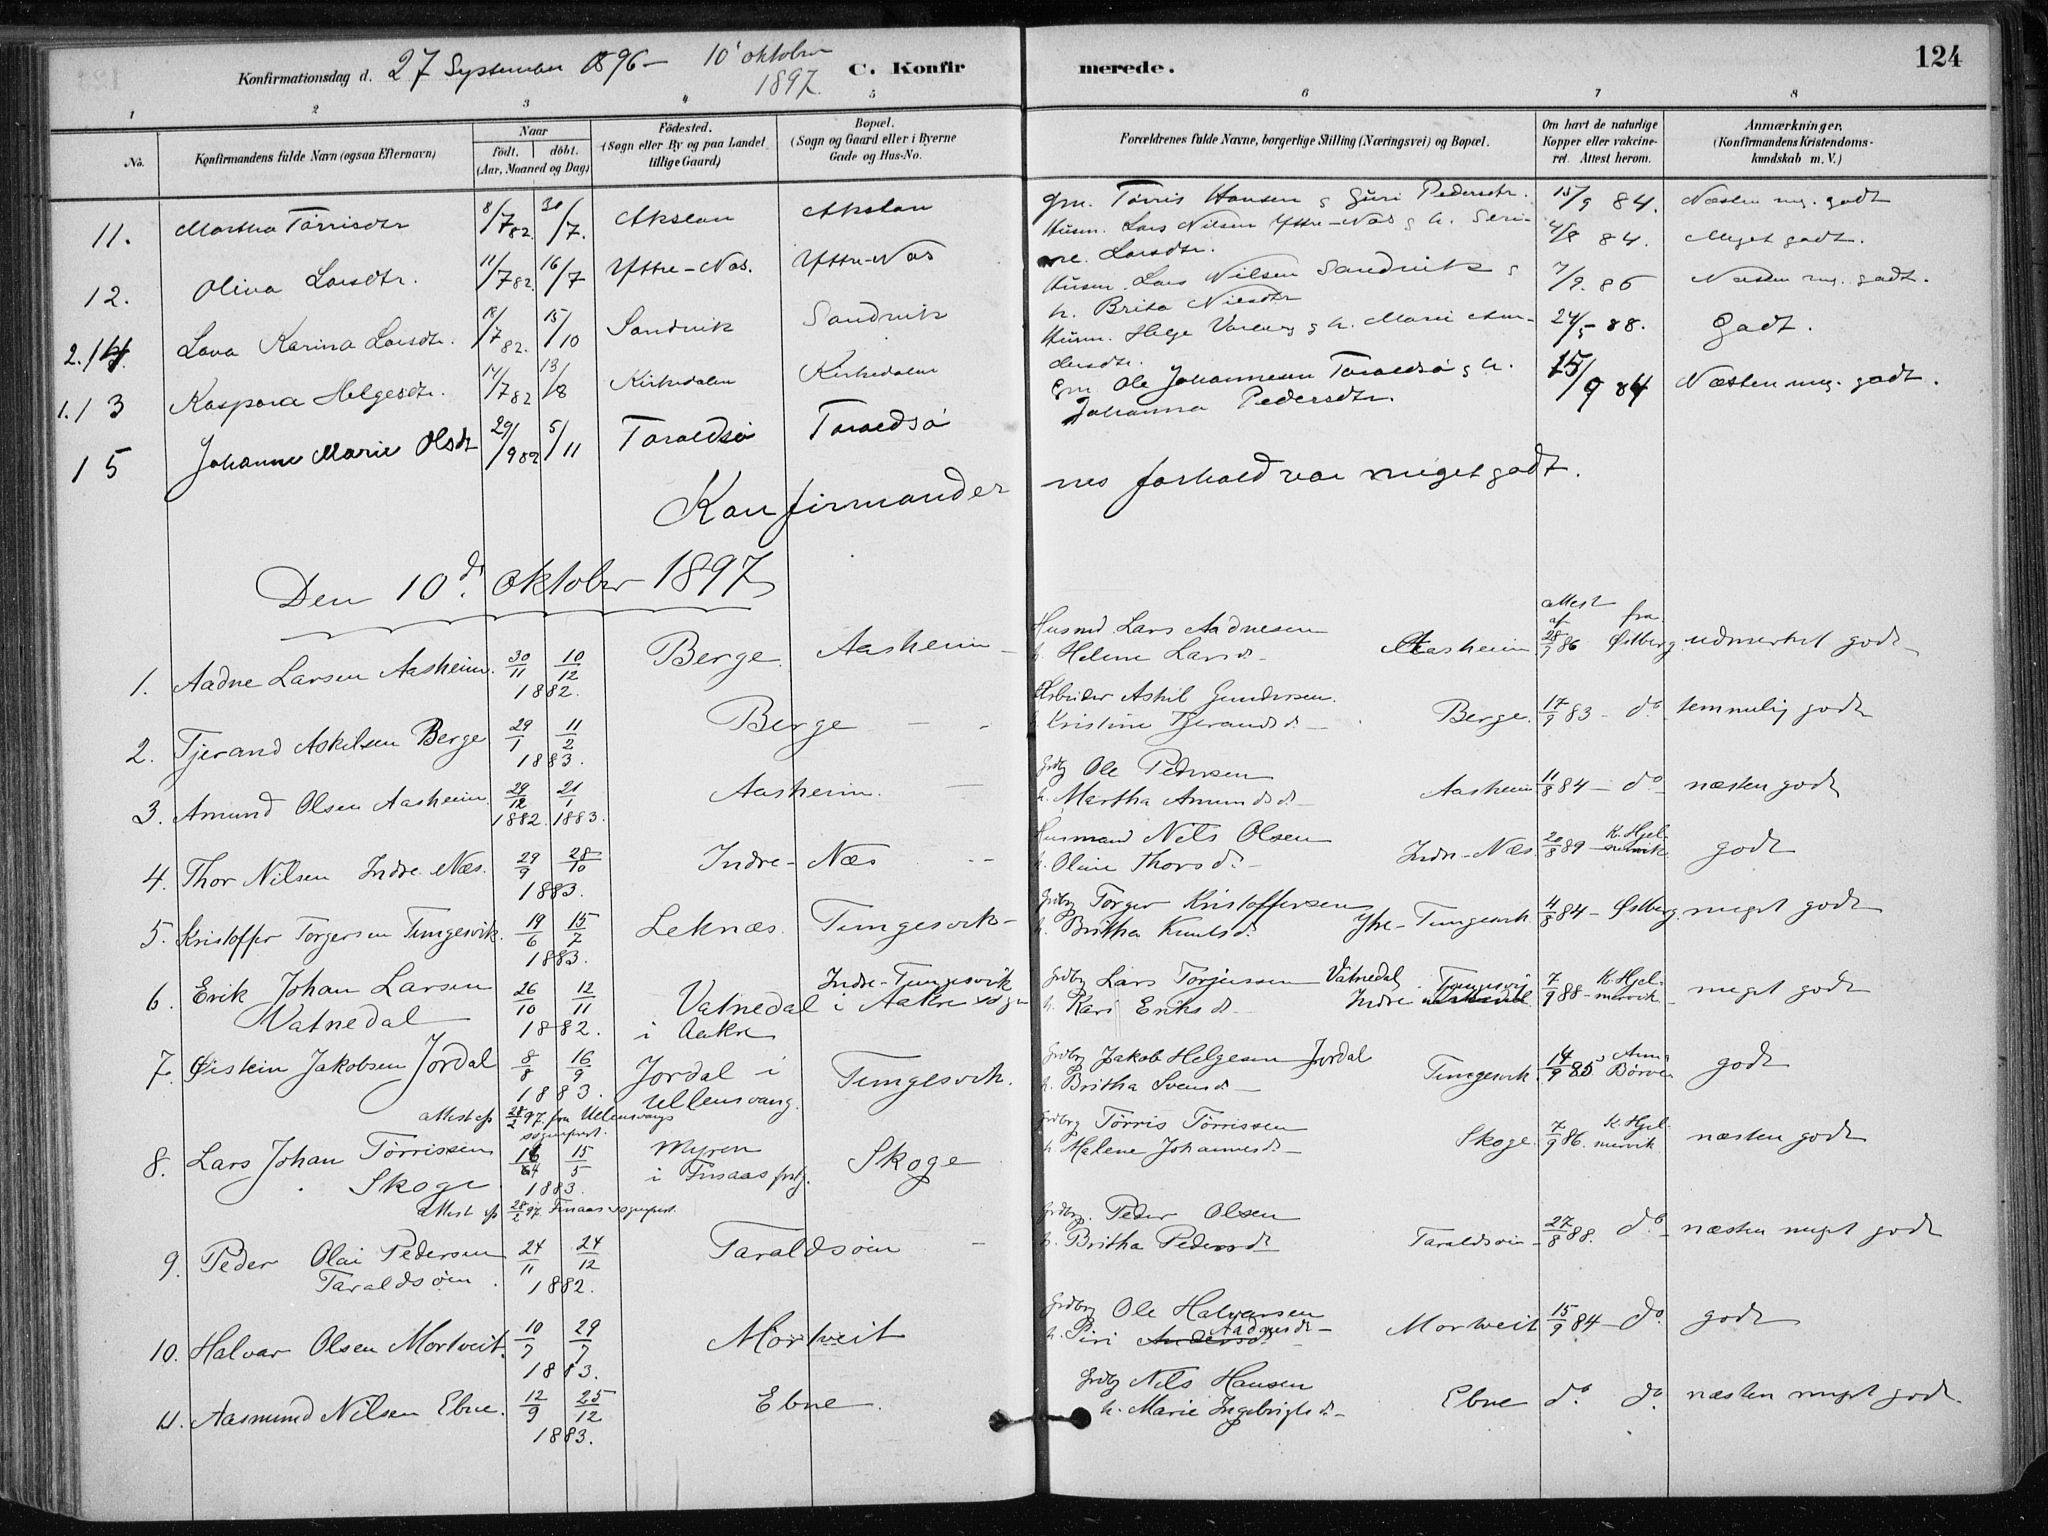 Konfirmationsdag d. 27 September 1896 – 10' oktober 1897. C. Konfirmerede. 124
1 2 3 4 5 6 7 8
No. Konfirmandens fulde Navn (ogsaa Efternavn) Naar født. døbt. (Aar, Maaned og Dag) Fødested. (Sogn eller By og paa Landet tillige Gaard) Bopæl. (Sogn og Gaard eller i Byerne Gade og Hus-No. Forældrenes fulde Navne, borgerlige Stilling (Næringsvei) og Bopæl. Om havt de naturlige Kopper eller vakcineret. Attest herom. Anmærkninger. (Konfirmandens Kristendomskundskab m. V.)
11. Martha Tørrisdtr 8/7 82. 30/7. Akslan Akslan gm. Tørris Hansen g Guri Pedersdtr. 15/9 84. Næsten mg. godt
12. Oliva Larsdtr. 11/7 82. 16/7 Yttre-Nas. Yttre-Nas Husm. Lars Nilsen Yttre-Nas g h. Larsdtr. 4/8 84. Meget godt.
2. 14. Lava Karina Larsdtr. 18/7 82. 15/10 Sandvik Sandvik Husm. Lars Nilsen Sandvik g h. Brita Nilsdtr 7/9. 86 Næsten mg. godt.
1. 13 Kaspara Helgesdtr. 14/7 82 13/8 Kirkedalen Kirkedalen Husm. Helge g h. Marie Andersdtr. 24/5 – 88. Godt.
15 Johanne Marie Olsdt 29/9 82 5/11 Taraldsø Taraldsø Gm Ole Johannesen Taraldsø g h. Johanna Pedersdtr. 15/9 84 Næsten mg. godt.
Konfirmandernes forhold var meget godt.
Den 10d. oktober 1897
1. Aadne Larsen Aasheim. 30/11 10/12 1882. Berge. Aasheim – Husmd. Lars Aadnesen h. Helene Larsd. – Aasheim attest af 28/7 86 fra Østberg. udmerket godt –
2. Tjerand Askilsen Berge 29/1 11/2 1883. Berge – – Arbeider Askil Gundersen. h. Kristine Tjerandsd. – Berge. 17/9 83 – do temmelig godt
3. Amund Olsen Aasheim. 29/12 1882. 21/1 1883. Aasheim. – Grdbg Ole Pedersen h. Martha Amundsd. – Aasheim 11/8 84 – do næsten godt
4. Thor Nilsen Indre Næs. 29/9 28/10 1883. Indre – Næs – – Husmand Nils Olsen h. Oline Thorsd. – Indre-Næs 20/8 89 K. Hjelmervik. godt
5. Kristoffer Torgersen Tungesvik. 19/6 15/7 1883. Leknæs. Tungesvik – Grdbg Torger Kristoffersen h. Britha Knutsd. Ytre-Tungesvik. 4/8 84 – Østberg. meget godt
6. Erik Johan Larsen Vatnedal 26/10 12/11 1882. Vatnedal i Aakre Indre-Tungesvik i Aakre sogn Grdbg Lars Torjussen Vatnedal h. Kari Eriksd. – Indre Tungesvig 7/9 88 – K Hjelmervik – meget godt
7. Øistein Jakobsen Jordal 8/8 16/9 1883. Jordal i Ullensvang. Tungesvik. Grdbg Jakob Helgesen Jordal h. Britha Svensd. – Tungesvik. 14/9 85 Anna Børven godt
attest af 28/2 97. fra Ullensvangs sogneprst.
8. Lars Johan Tørrissen Skoge 16/4 15/5 1883. Myren i Finaas prstg. Skoge Grdbrg Tørris Tørrissen h Malene Johannesd. – Skoge. 7/9 86. K. Hjelmervik næsten godt
attest af 28/2 97. Finaas sogneprst.
9. Peder Olai Pedersen Taraldsøin. 24/11 24/12 1882. Taraldsøin – Grdbrg. Peder Olsen h. Britha Pedersdt Taraldsøin – 27/8 88. do – næsten meget godt
10. Halvar Olsen Mortveit. 10/7 29/7 1883. Mortveit Grdbrg Ole Halvarsen h. Piri Aadnesdt – Mortveit 15/9 84 – do. godt
11. Aasmund Nilsen Ebne. 12/9 25/12 1883. Ebne. Grdbg Nils Hansen h. Marie Ingebrigtsd. – Ebne do. do. næsten meget godt.